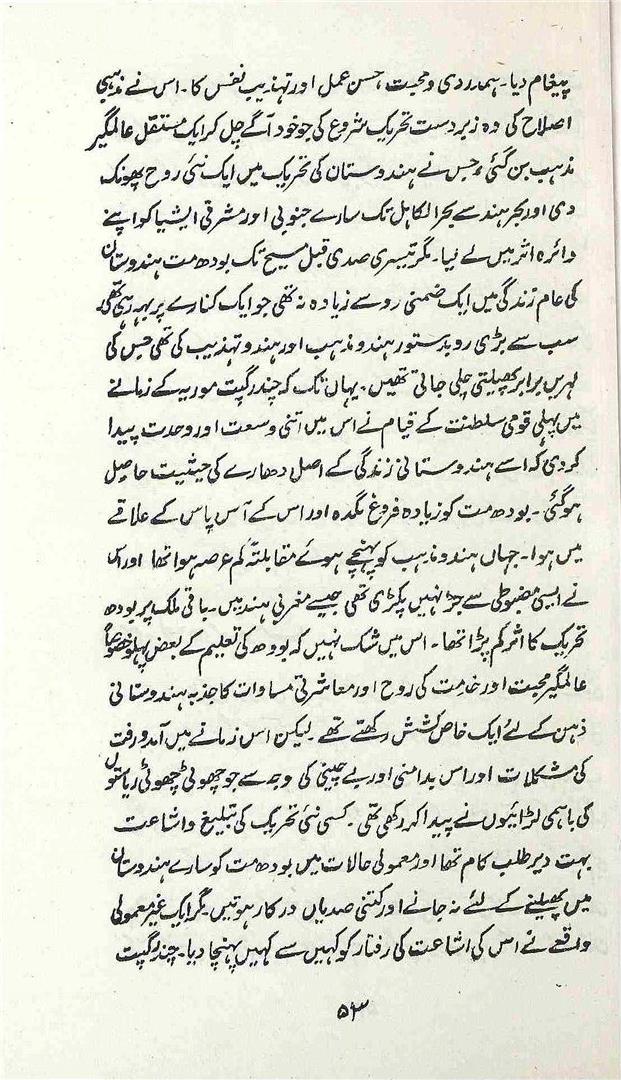 پیغام دیا۔ ہمدردی و محبت، حسن عمل اور تہذیب نفس کا۔ اس نے مذہبی
اصلاح کی وہ زبردست تحریک شروع کی جو خود آگے چل کر ایک مستقل عالمگیر
مذہب بن گئی، جس نے ہندوستان کی تحریک میں ایک نئی روح پھونک
دی اور بحر ہند سے بحر الکاہل تک سارے جنوبی اور مشرقی ایشیا کو اپنے
دائرہ اثر میں لے لیا۔ مگر تیسری صدی قبل مسیح تک بودھ مت ہندوستان
کی عام زندگی میں ایک ضمنی رو سے زیادہ نہ تھی جو ایک کنارے پر بہہ رہی تھی۔
سب سے بڑی رو بدستور ہندو مذہب اور ہندو تہذیب کی تھی جس کی
لہریں برابر پھیلتی چلی جاتی تھیں۔ یہاں تک کہ چندر گپت موریہ کے زمانے
میں پہلی قومی سلطنت کے قیام نے اس میں اتنی وسعت اور وحدت پیدا
کر دی کہ اسے ہندوستانی زندگی کے اصل دھارے کی حیثیت حاصل
ہوگئی۔ بودھ مت کو زیادہ فروغ مگدہ اور اس کے آس پاس کے علاقے
میں ہوا۔ جہاں ہندو مذہب کو پہنچے ہوئے مقابلتہً کم عرصہ ہوا تھا اور اس
نے ایسی مضبوطی سے جڑ نہیں پکڑی تھی جیسے مغربی ہند میں۔ باقی ملک پر بودھ
تحریک کا اثر کم پڑا تھا۔ اس میں شک نہیں کہ بودھ کی تعلیم کے بعض پہلو خصوصاً
عالمگیر محبت اور خدمت کی روح اور معاشرتی مساوات کا جذبہ ہندوستانی
ذہن کے لئے ایک خاص کشش رکھتے تھے۔ لیکن اس زمانے میں آمد و رفت
کی مشکلات اور اس بدامنی اور بے چینی کی وجہ سے جو چھوٹی چھوٹی ریاستوں
کی باہمی لڑائیوں نے پیدا کر رکھی تھی۔ کسی نئی تحریک کی تبلیغ و اشاعت
بہت دیر طلب کام تھا اور معمولی حالات میں بودھ مت کو سارے ہندوستان
میں پھیلنے کے لئے نہ جانے اور کتنی صدیاں درکار ہوتیں۔ مگر ایک غیر معمولی
واقعے نے اس کی اشاعت کی رفتار کو کہیں سے کہیں پہنچا دیا۔ چندر گپت
۵۳